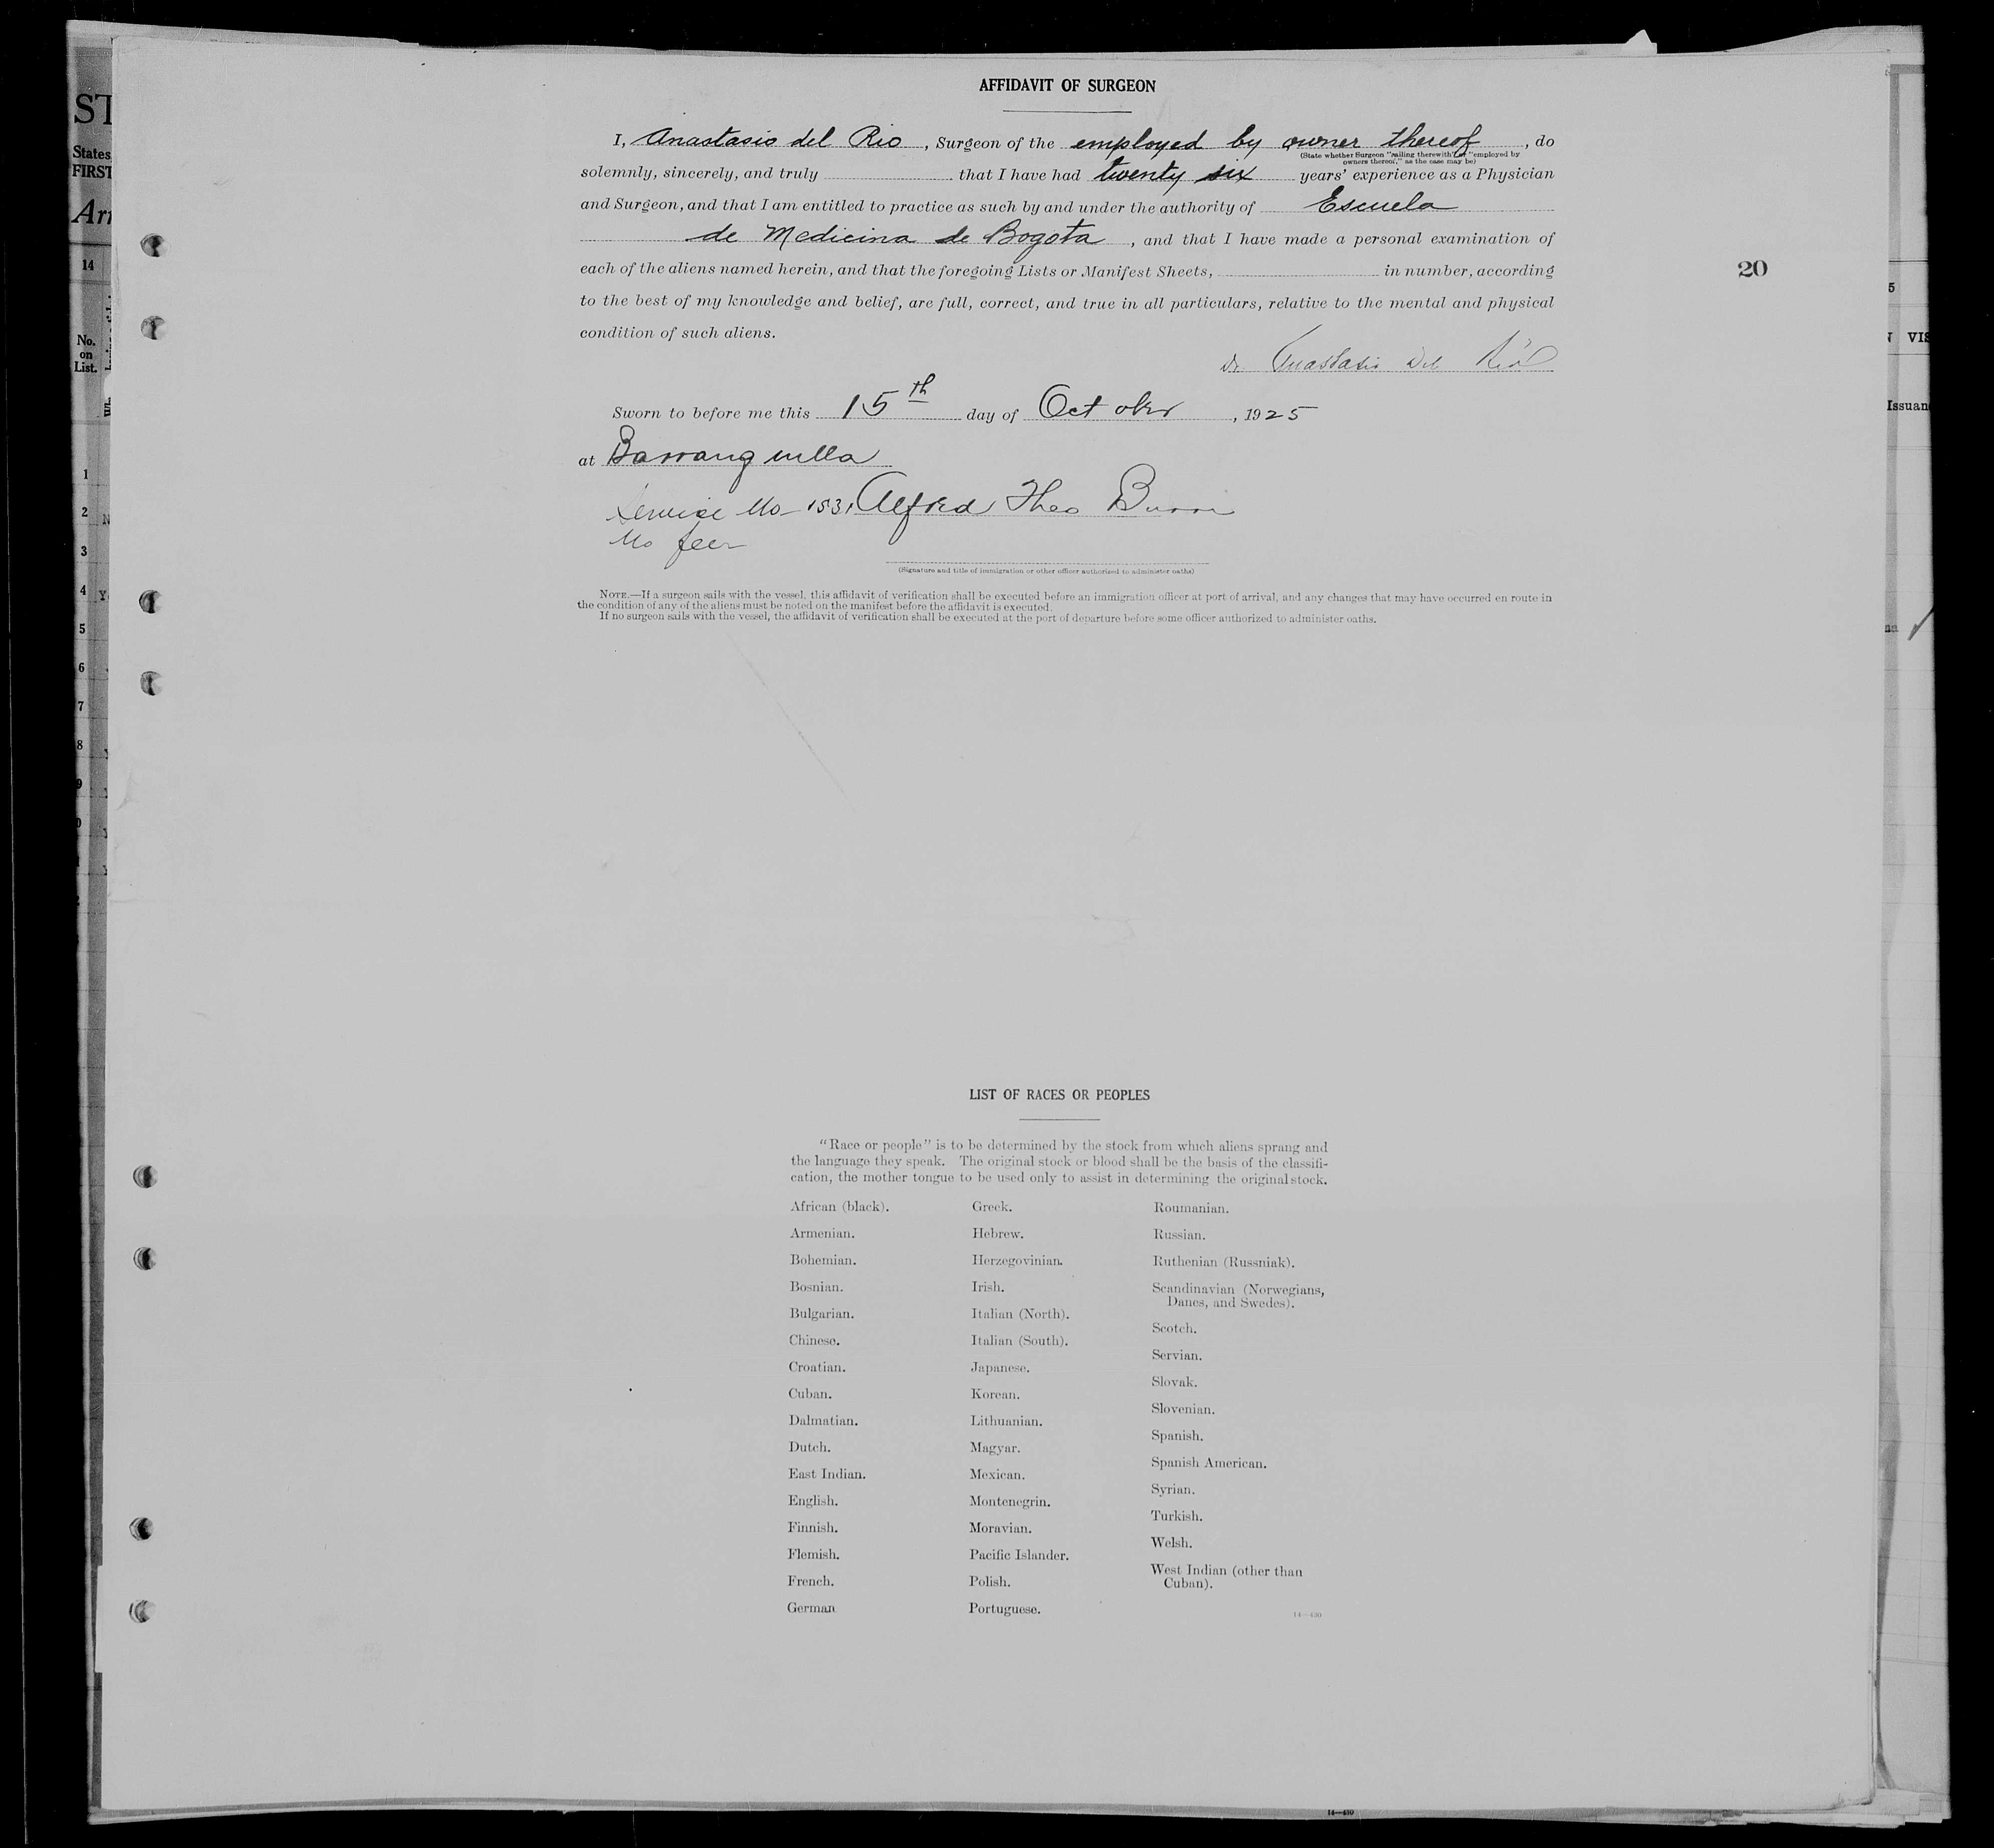 AFFIDAVIT OF SURGEON
I, Anastasio del Rio, Surgeon of the employed by owner thereof, do
(State whether Surgeon "sailing therewith" or "employed by
owners thereof," as the case may be)
solemnly, sincerely, and truly that I have had twenty six years' experience as a Physician
and Surgeon, and that I am entitled to practice as such by and under the authority of Escuela
de Medicina de Bogota, and that I have made a personal examination of
each of the aliens named herein, and that the foregoing Lists or Manifest Sheets, in number, according
20
to the best of my knowledge and belief, are full, correct, and true in all particulars, relative to the mental and physical
condition of such aliens.
Dr Anastasio Del Rio
Sworn to before me this 15th day of October, 1925
at Barranquilla
Service No 1531 Alfred Theo Burri
No fee
(Signature and title of immigration or other officer authorized to administer oaths)
NOTE.—If a surgeon sails with the vessel, this affidavit of verification shall be executed before an immigration officer at port of arrival, and any changes that may have occurred en route in
the condition of any of the aliens must be noted on the manifest before the affidavit is executed.
If no surgeon sails with the vessel, the affidavit of verification shall be executed at the port of departure before some officer authorized to administer oaths.
LIST OF RACES OR PEOPLES
"Race or people" is to be determined by the stock from which aliens sprang and
the language they speak. The original stock or blood shall be the basis of the classifi-
cation, the mother tongue to be used only to assist in determining the original stock.
African (black).
Armenian.
Bohemian.
Bosnian.
Bulgarian.
Chinese.
Croatian.
Cuban.
Dalmatian.
Dutch.
East Indian.
English.
Finnish.
Flemish.
French.
German
Greek.
Hebrew.
Herzegovinian.
Irish.
Italian (North).
Italian (South).
Japanese.
Korean.
Lithuanian.
Magyar.
Mexican.
Montenegrin.
Moravian.
Pacific Islander.
Polish.
Portuguese.
Roumanian.
Russian.
Ruthenian (Russniak).
Scandinavian (Norwegians,
Danes, and Swedes).
Scotch.
Servian.
Slovak.
Slovenian.
Spanish.
Spanish American.
Syrian.
Turkish.
Welsh.
West Indian (other than
Cuban).
14—430
ST
States
FIRST
Arr
14
No.
on
List.
1
2
3
4
5
6
7
8
9
5
VIS
Issuan
14—430